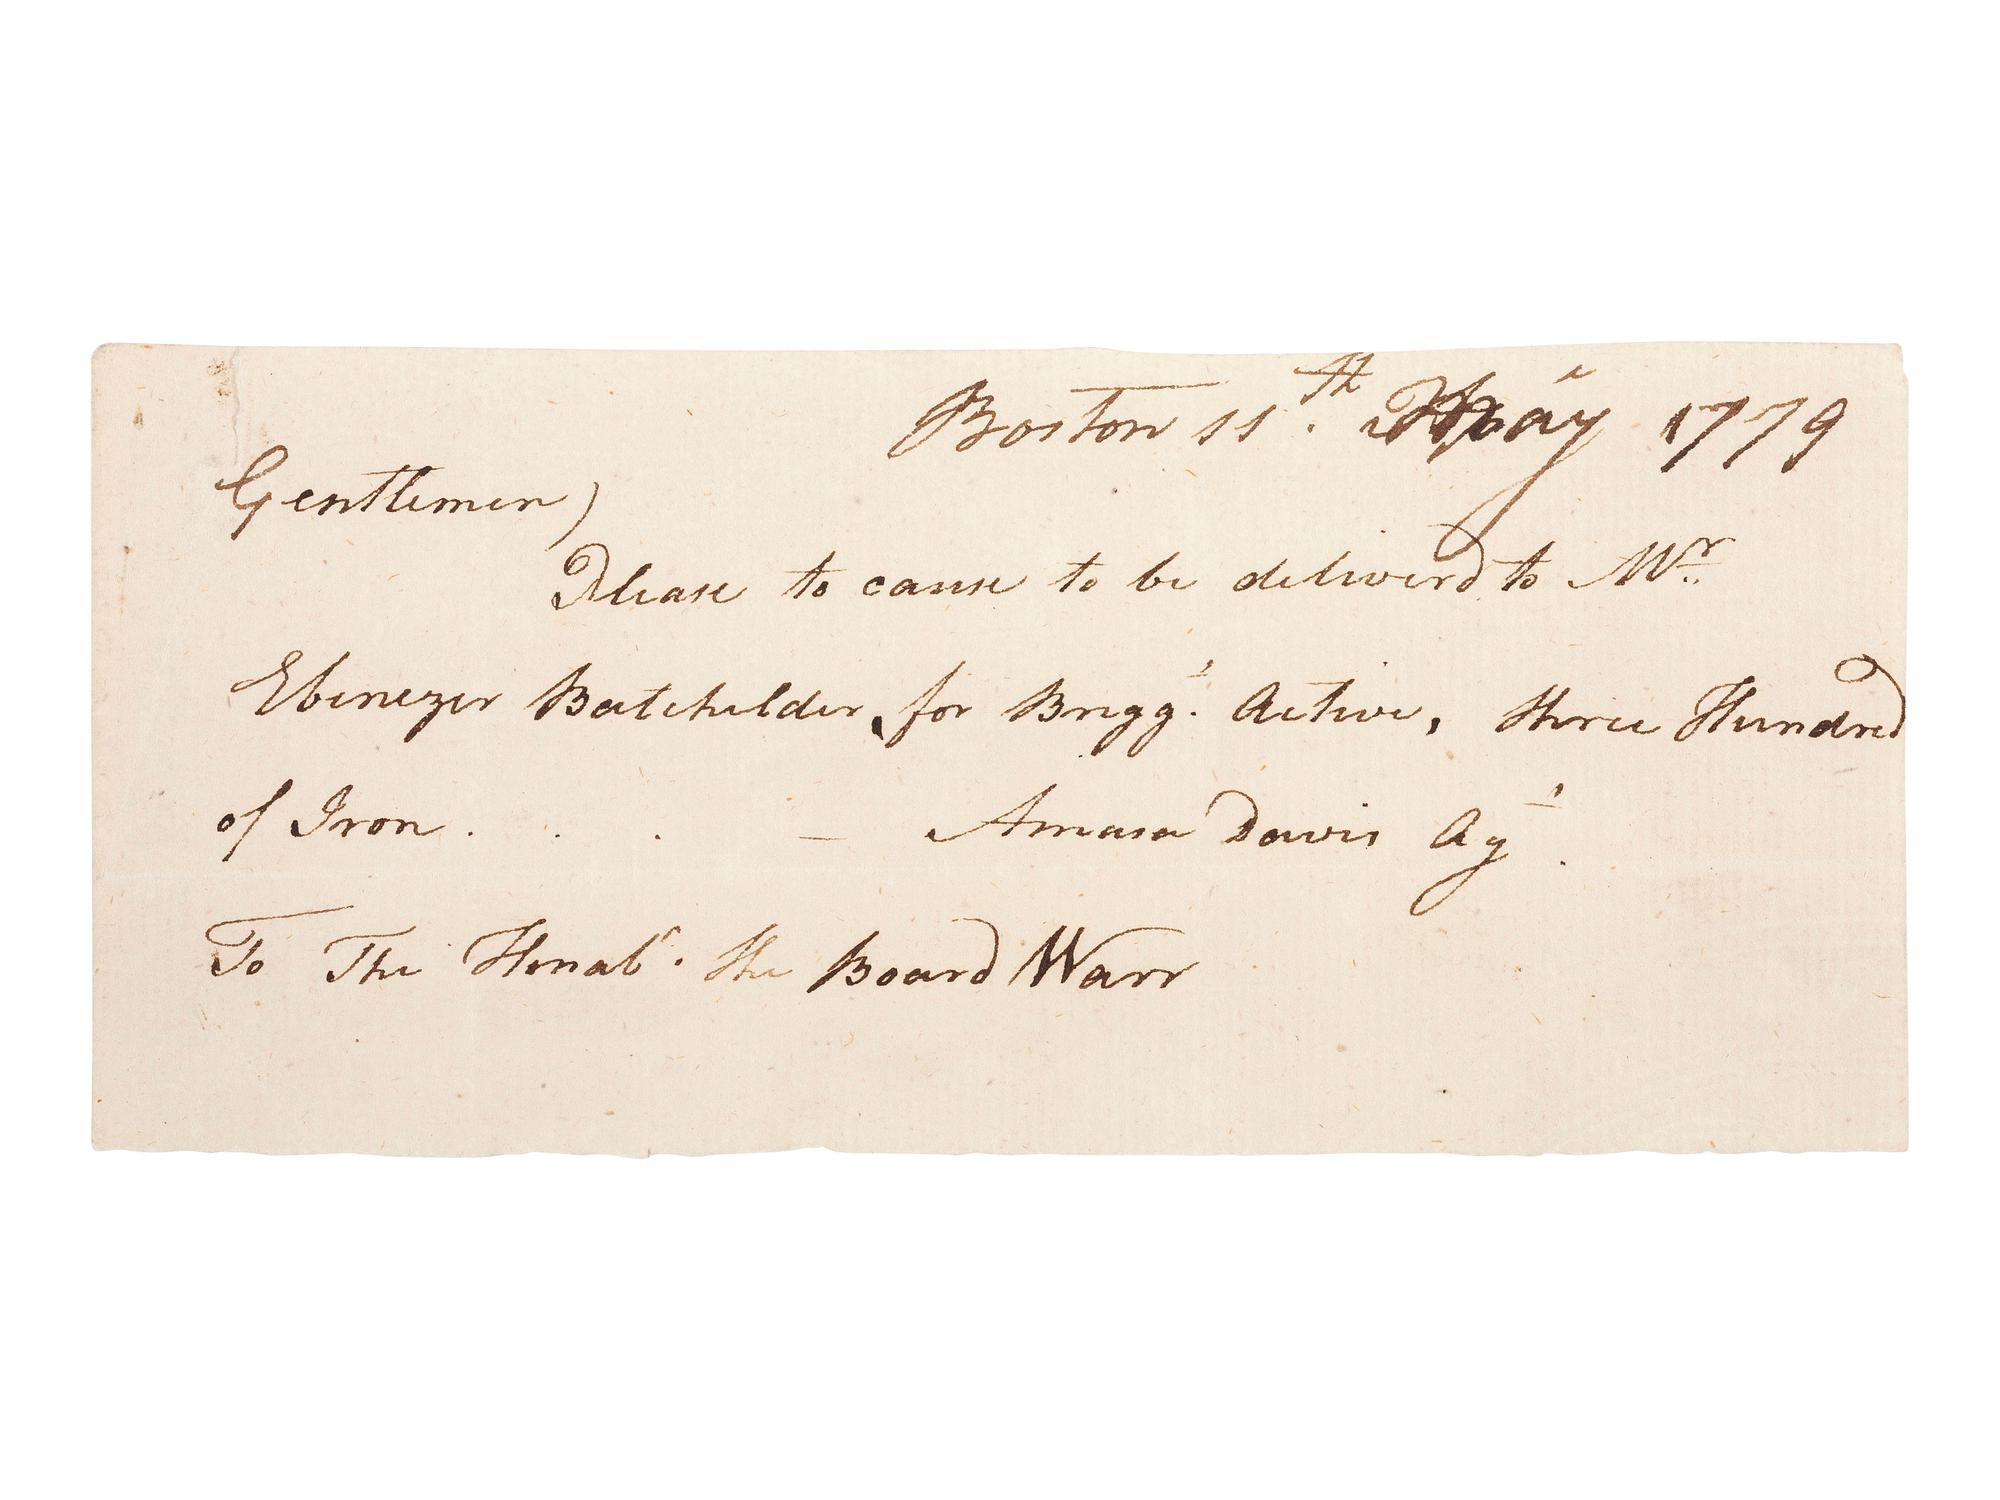 Boston 11th. May 1779
Gentlemen)
Please to cause to be deliverd to Mr.
Ebenezer Batchelder, for Brigg.t Active, three Hundred
of Iron . . . — Amasa Davis Agt.
To The Honable. the Board Warr